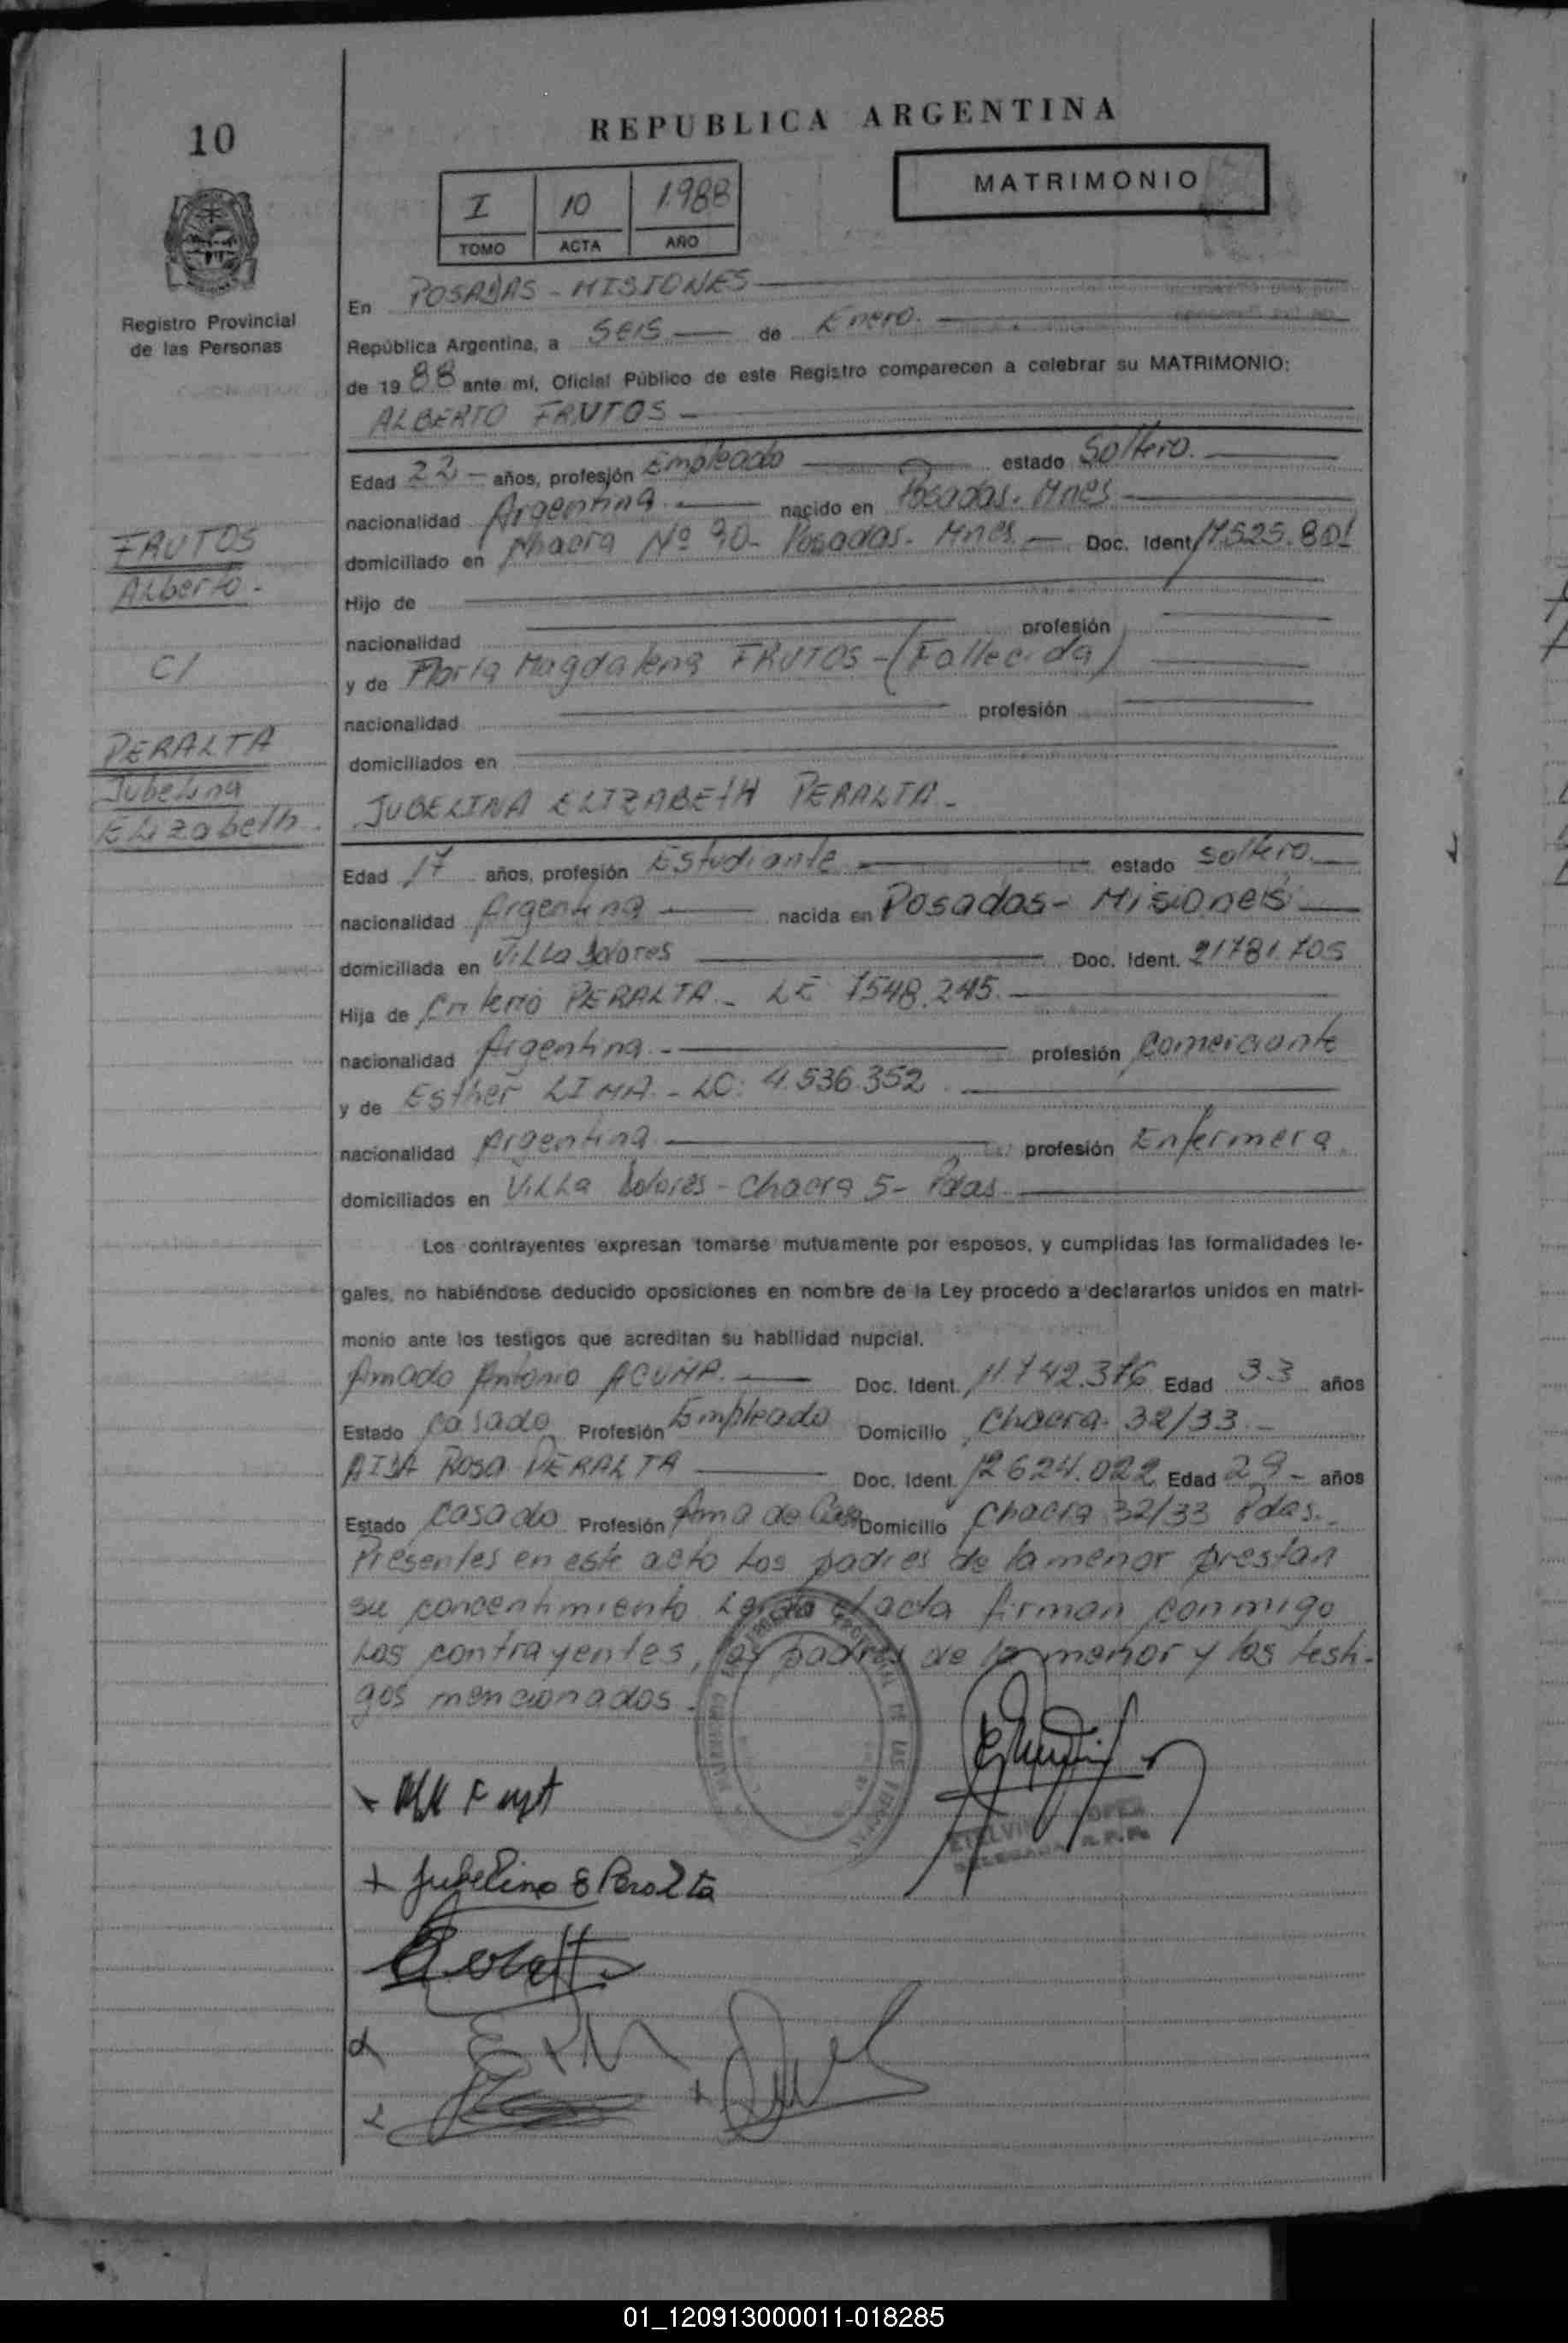 REPUBLICA ARGENTINA
10
MATRIMONIO
I 10 1.988
TOMO ACTA AÑO
Registro Provincial
de las Personas
En POSADAS - MISIONES
República Argentina, a SEIS de Enero.
de 19 88 ante mí, Oficial Público de este Registro comparecen a celebrar su MATRIMONIO:
ALBERTO FRUTOS
Edad 22 años, profesión Empleado estado Soltero.
nacionalidad Argentina nacido en Posadas. Mnes
domiciliado en Chacra Nº 90 - Posadas. Mnes. Doc. Ident. 17.525.801
Hijo de
nacionalidad profesión
y de Magdalena FRUTOS - (Fallecida)
nacionalidad profesión
domiciliados en
JUBELINA ELIZABETH PERALTA -
FRUTOS
Alberto -
C/
PERALTA
Jubelina
Elizabeth.
Edad 17 años, profesión Estudiante estado soltero.
nacionalidad Argentina nacida en Posadas - Misiones
domiciliada en Villa Dolores Doc. Ident. 21781.705
Hija de PERALTA - LE 7548.245.
nacionalidad Argentina. profesión Comerciante
y de Esther LIMA - LC: 4.536.352
nacionalidad Argentina profesión Enfermera.
domiciliados en Villa Dolores - Chacra 5 - Pdas.
Los contrayentes expresan tomarse mutuamente por esposos, y cumplidas las formalidades le-
gales, no habiéndose deducido oposiciones en nombre de la Ley procedo a declararlos unidos en matri-
monio ante los testigos que acreditan su habilidad nupcial.
Amado Antonio ACUÑA. Doc. Ident. 11.742.376 Edad 33 años
Estado Casado Profesión Empleado Domicilio Chacra 32/33
AIDA Rosa PERALTA Doc. Ident. 12624.022 Edad 29 - años
Estado Casado Profesión Ama de Casa Domicilio Chacra 32/33 Pdas.
Presentes en este acto los padres de la menor prestan
su concentimiento Leída el acta firman conmigo
los contrayentes, los padres de la menor y los testi-
gos mencionados.
Jubelina E Peralta
01_120913000011-018285